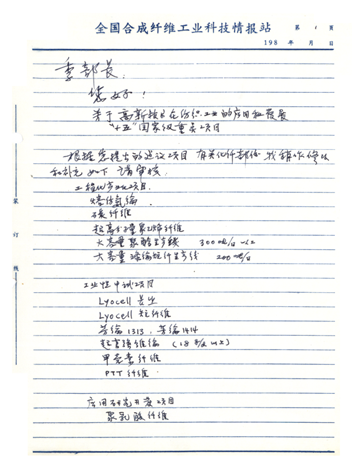 全国合成纤维工业科技情报站
第 1 页
198 年 月 日
季部长:
您好!
关于高新技术在纺织工业的应用和发展
"十五"国家级重点项目
根据您提出的建议项目 有关化纤部份 我稍作修改
和补充如下 请审核
工程化产业化项目
熔纺氨纶
碳纤维
超高分子量聚乙烯纤维
大容量聚酯生产线 300吨/日以上
大容量涤纶短纤生产线 200吨/日
工业性中试项目
Lyocell 长丝
Lyocell 短纤维
芳纶1313、芳纶1414
甲壳素纤维
PTT 纤维
应用研究开发项目
聚乳酸纤维
装
订
线